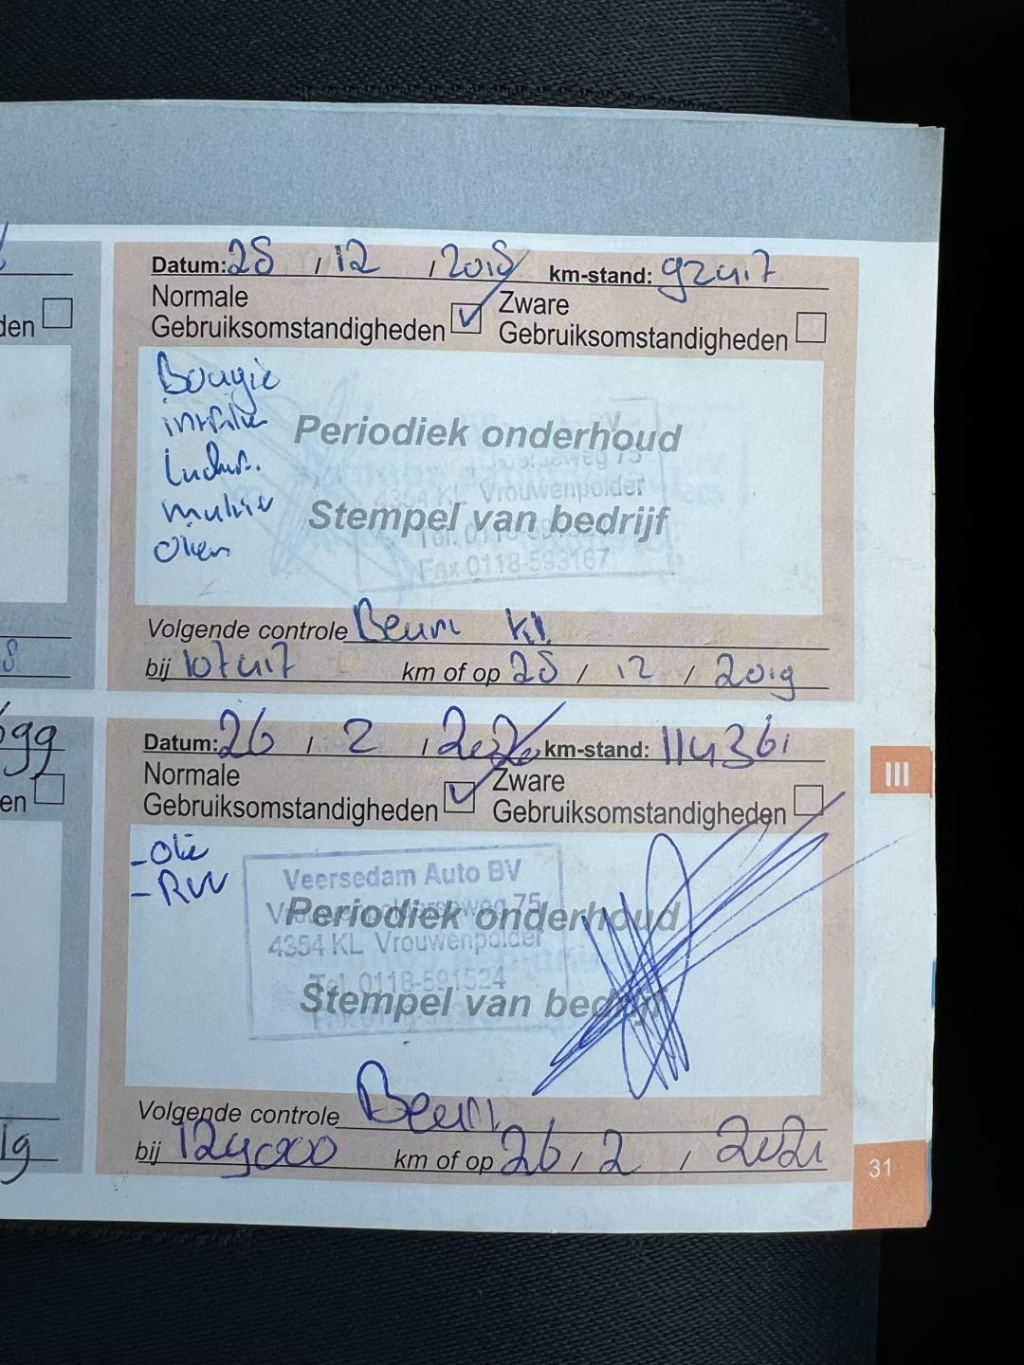 Datum: 28 / 12 / 2018 km-stand: 92417
Normale Gebruiksomstandigheden
Zware Gebruiksomstandigheden
den
Bougie
Periodiek onderhoud
Stempel van bedrijf
4354 KL Vrouwenpolder
Fax 0118-583167
olien
Volgende controle Beurt kl.
bij 107417 km of op 28 / 12 / 2019
8
99
en
Datum: 26 / 2 / 2020 km-stand: 114361
Normale Gebruiksomstandigheden
Zware Gebruiksomstandigheden
III
- Olie
- RVV
Veersedam Auto BV
Periodiek onderhoud
4354 KL Vrouwenpolder
Tel. 0118-591524
Stempel van bedrijf
Volgende controle Beurt
bij 129000 km of op 26 / 2 / 2021
19
31